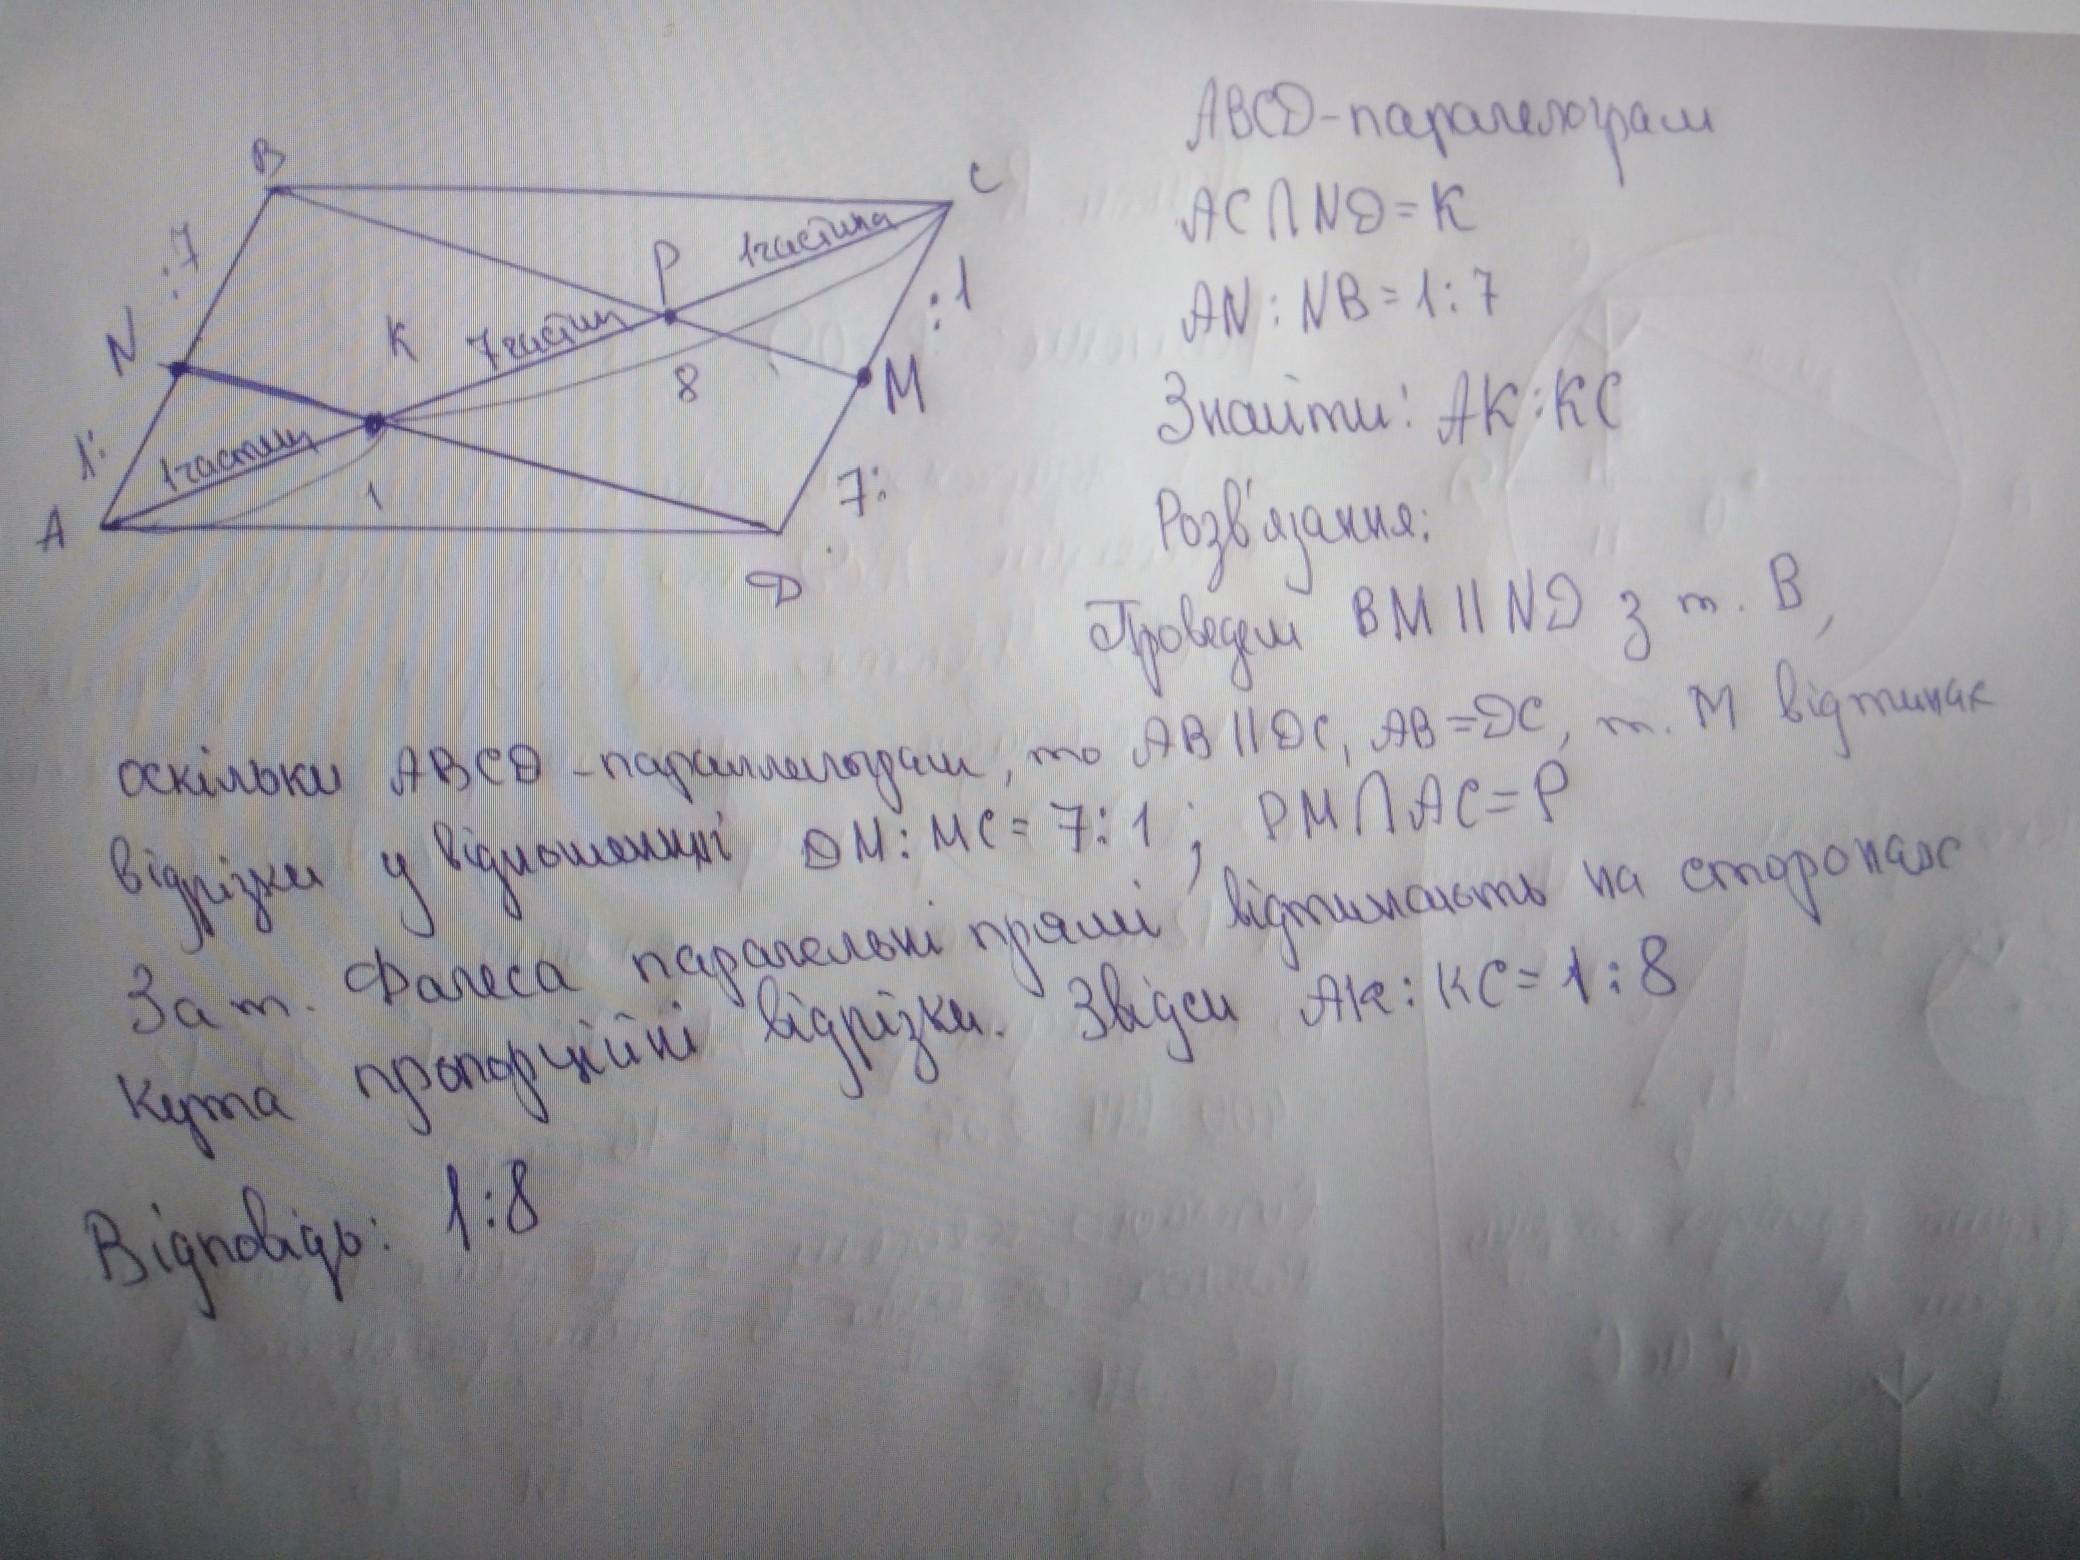 B
C
: 7
P
1 частина
: 1
N
K
7 частин
M
8
1 :
1 частин
7 :
1
A
D
ABCD - паралелограм
AC ∩ ND = K
AN : NB = 1 : 7
Знайти : AK : KC
Розв'язання :
Проведем BM || ND з т. B,
оскільки ABCD - параллелограм, то AB || DC, AB = DC, т. M відтинає
відрізки у відношенні DM : MC = 7 : 1 ; PM ∩ AC = P
За т. Фалеса паралельні прямі відтинають на сторонах
кута пропорційні відрізки. Звідси AK : KC = 1 : 8
Відповідь : 1 : 8